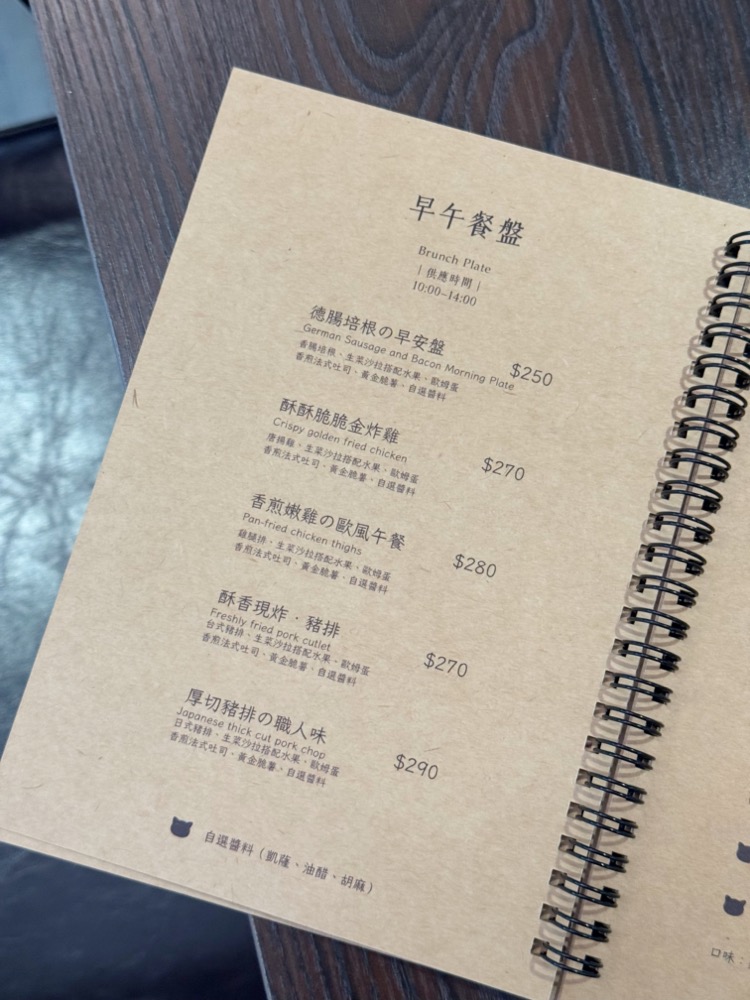 早午餐盤
Brunch Plate
| 供應時間 |
10:00-14:00
德腸培根の早安盤
German Sausage and Bacon Morning Plate
$250
香腸培根、生菜沙拉搭配水果、歐姆蛋
香煎法式吐司、黃金脆薯、自選醬料
酥酥脆脆金炸雞
Crispy golden fried chicken
$270
唐揚雞、生菜沙拉搭配水果、歐姆蛋
香煎法式吐司、黃金脆薯、自選醬料
香煎嫩雞の歐風午餐
Pan-fried chicken thighs
$280
雞腿排、生菜沙拉搭配水果、歐姆蛋
香煎法式吐司、黃金脆薯、自選醬料
酥香現炸·豬排
Freshly fried pork cutlet
$270
台式豬排、生菜沙拉搭配水果、歐姆蛋
香煎法式吐司、黃金脆薯、自選醬料
厚切豬排の職人味
Japanese thick cut pork chop
$290
日式豬排、生菜沙拉搭配水果、歐姆蛋
香煎法式吐司、黃金脆薯、自選醬料
自選醬料（凱薩、油醋、胡麻）
口味：